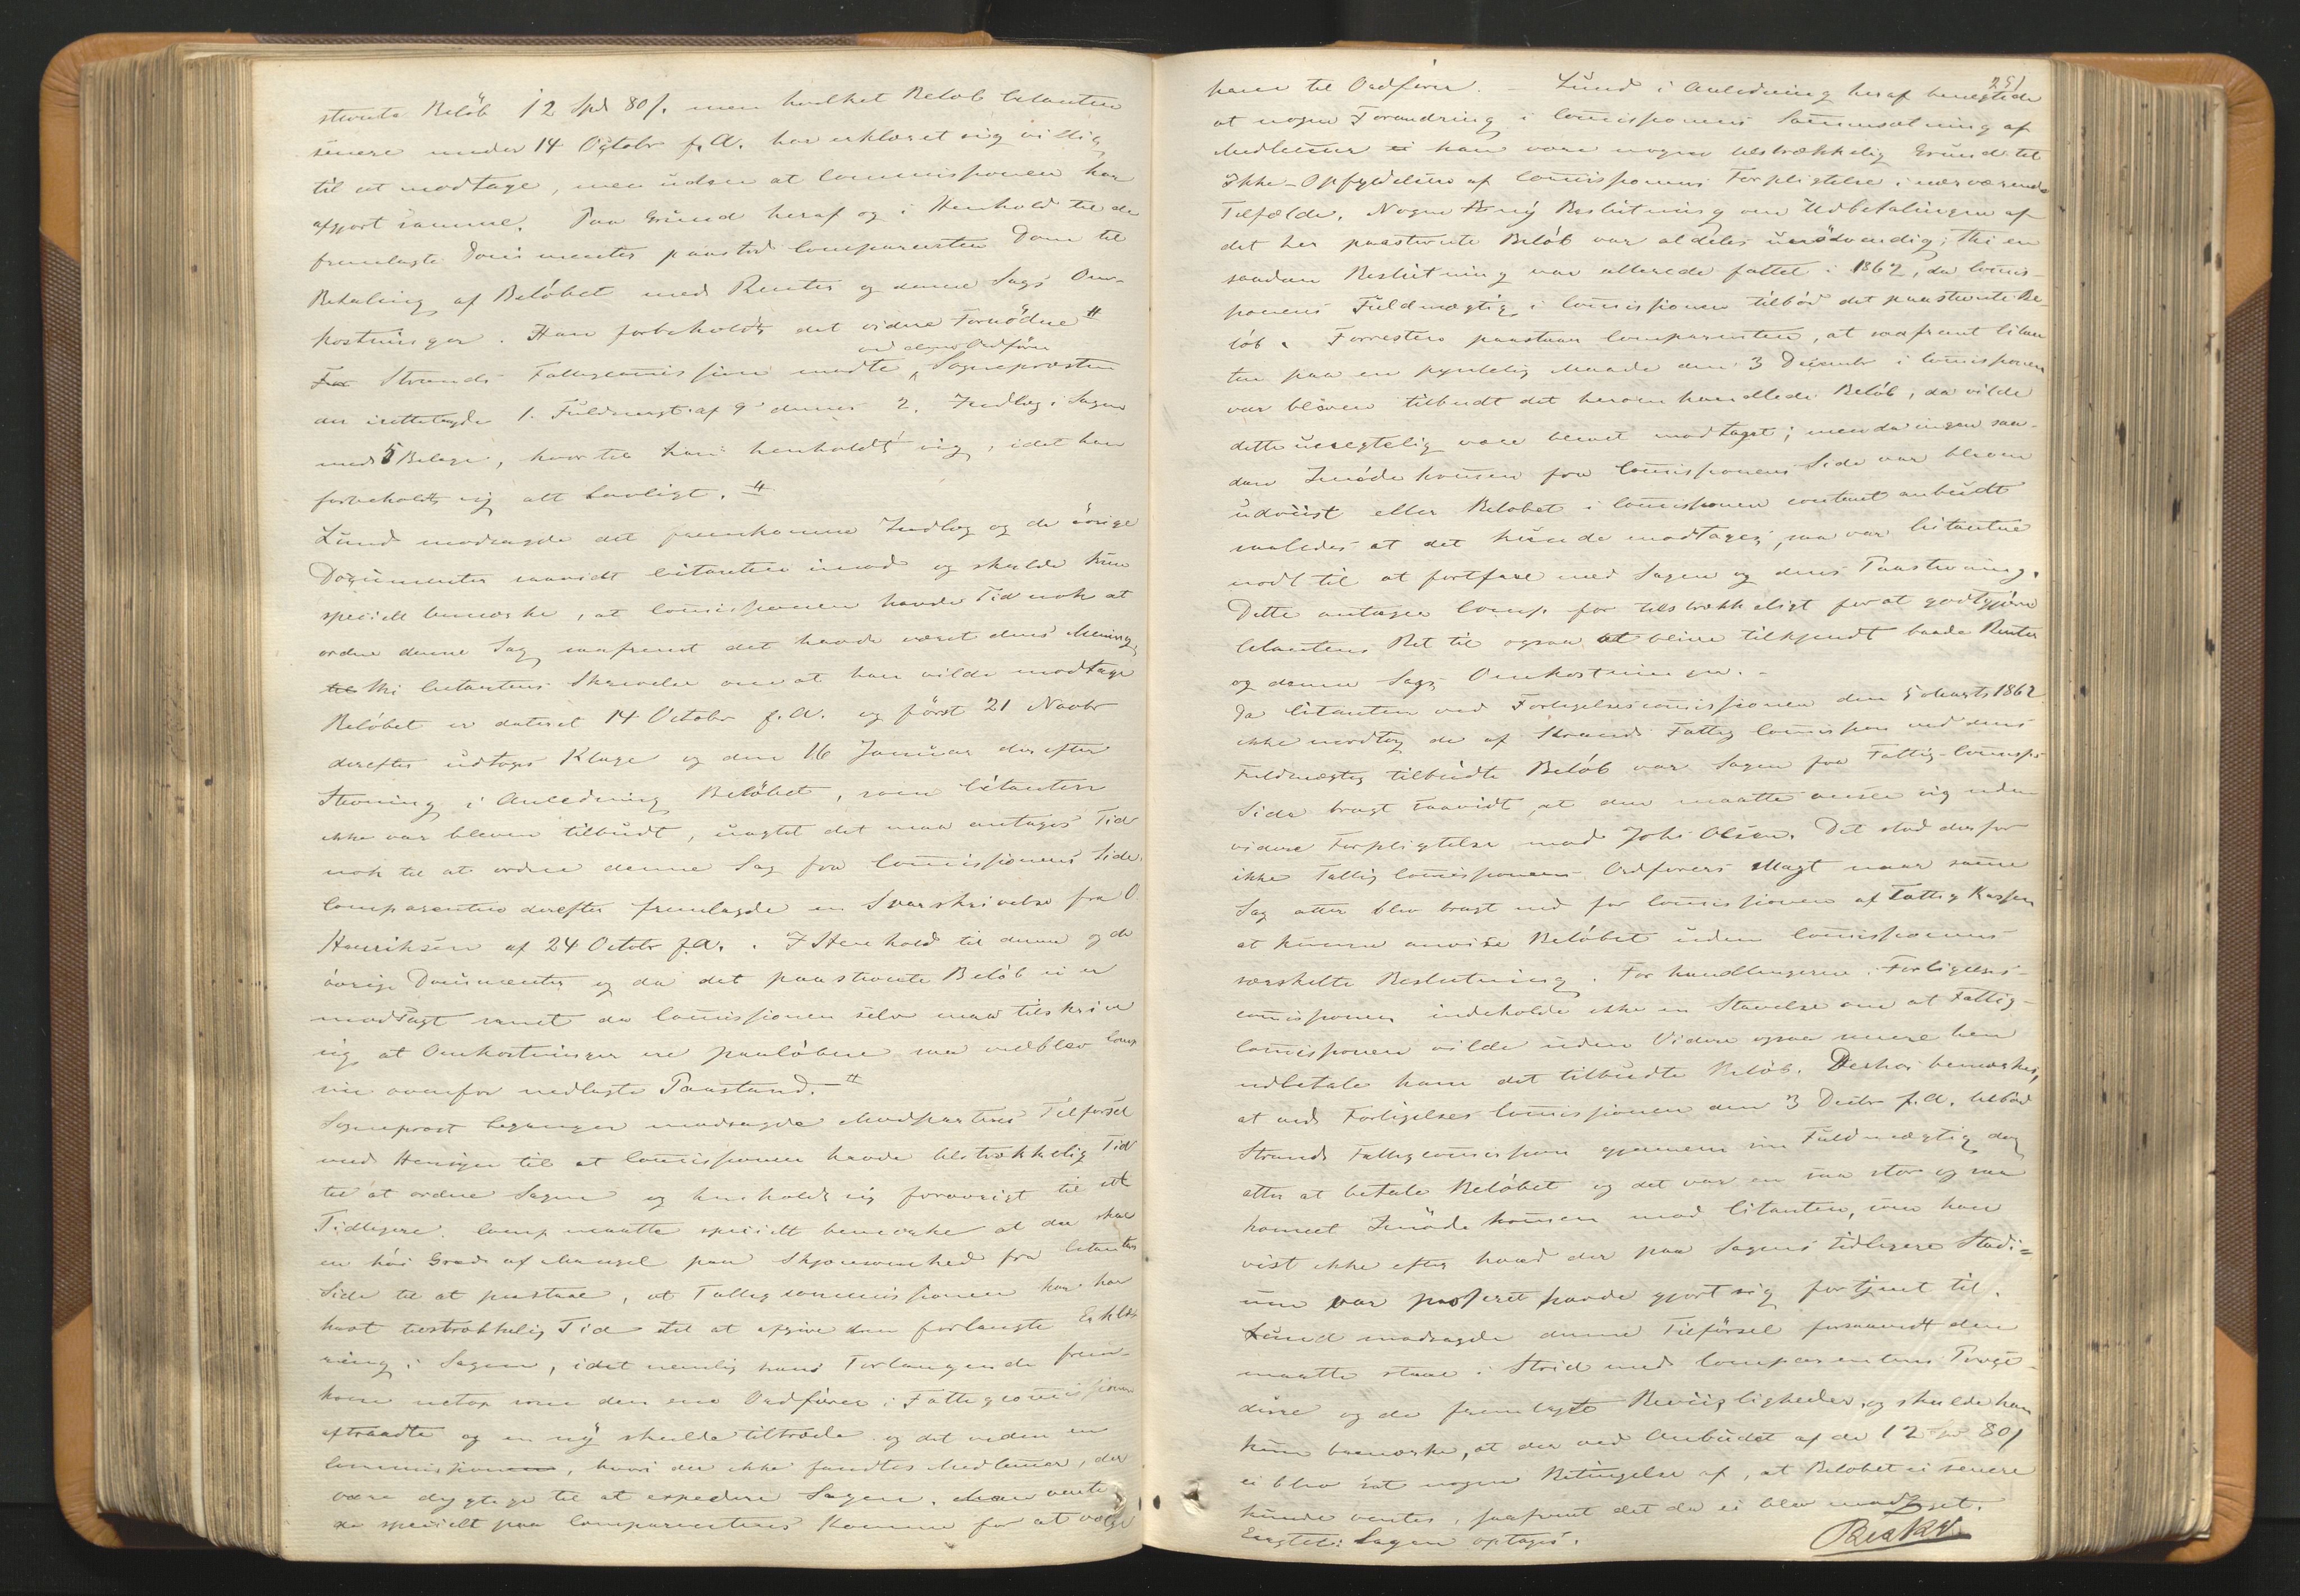 stevnte Beløb 12 Spd 80 s. men hvilket Beløb Citanten
senere under 14 Octobr f. A. har erklæret sig villig
til at modtage, men uden at Commissionen har
afgjort samme. Paa Grund heraf og i Henhold til de
fremlagte Documenter paastod Comparenten Dom til
Betaling af Beløbet med Renter og denne Sags Om-
kostninger. Han forbeholdt det videre Fornødne #
ved dens Ordfører
For Strands Fattigcommission mødte Sognepræsten
der irettelagde 1. Fuldmagt af 9 dennes 2. Indlæg i Sagen
med 5 Bilage, hvortil han henholdt sig, idet han
forbeholdt sig alt Lovligt. #
Lund modsagde det fremkomne Indlæg og de øvrige
Documenter saavidt Citanten imod og skulde kun
specielt bemærke, at Commissionen havde Tid nok at
ordne denne Sag saafremt det havde været dens Mening,
til thi Citantens Skrivelse om at han vilde modtage
Beløbet er dateret 14 Octobr f. A. og først 21 Novbr
derefter udtoges Klage og den 16 Januar derefter
Stevning i Anledning Beløbet, som Citanten
ikke var bleven tilbudt, uagtet det maa antages Tid
nok til at ordne denne Sag fra Commissionens Side.
Comparenten derefter fremlagde en Svarskrivelse fra O
Henriksen af 24 Octobr f. A. I Henhold til denne og de
øvrige Documenter og da det paastevnte Beløb ei er
modsagt samt da Commissionen selv maa tilskrive
sig at Omkostninger ere paaløbne saa vedblev Comp
sin ovenfor nedlagte Paastand. #
Sognepræst modsagde Modpartens Tilførsel
med Hensyn til at Commissionen havde tilstrækkelig Tid
til at ordne Sagen og henholdt sig forøvrigt til det
Tidligere. Comp maatte specielt bemærke at der skal
en høi Grad af Mangel paa Skjønsomhed fra Citantens
Side til at paastaae, at Fattigcommissionen har
havt tilstrækkelig Tid til at afgive den forlangte Erklæ-
ring i Sagen, idet nemlig hans Forlangende frem-
kom netop som den ene Ordfører i Fattigcommissionen
aftraadte og en ny skulde tiltræde og det inden en
Commission, hvori der ikke fandtes Medlemer, der
vare dygtige til at expedere Sagen. Man vente-
de specielt paa Comparentens Komme for at vælge
251
ham til Ordfører. – Lund i Anledning heraf benegtede
at nogen Forandring i Comissionens Sammensætning af
Medlemer ei kan være nogen tilstrækkelig Grund til
Ikke-Opfyldelsen af Comissionens Forpligtelse i nærværende
Tilfælde. Nogen ny Beslutning om Udbetalingen af
det her paastevnte Beløb var aldeles unødvendig; thi en
saadan Beslutning var allerede fattet i 1862, da Comis-
sionens Fuldmægtig i Comissionen tilbød det paastevnte Be-
løb. Forresten paastaar Comparenten, at saafremt Citan
ten paa en pyntelig Maade den 3 Decembr i Comissionen
var bleven tilbudt det herom handlede Beløb, da vilde
dette unegtelig være blevet modtaget; men da ingen saa-
dan Imødekomen fra Comissionens Side var bleven
udviist eller Beløbet i Comissionen contant anbudt
saaledes at det kunde modtages, saa var Citanten
nødt til at fortfare med Sagen og dens Paastevning.
Dette antager Comp. for tilstrækkeligt for at godtgjøre
Citantens Ret til ogsaa at blive tilkjendt baade Renter
og denne Sags Omkostninger. –
Da Citanten ved Forligelsescomissionen den 5 Marts 1862
ikke modtog de af Strands Fattig Comission ved dens
Fuldmægtig tilbudte Beløb var Sagen fra Fattig-Comiss.
Side bragt saavidt, at den maatte ansee sig uden
videre Forpligtelse mod Johs Olsen. Det stod derfor
ikke Fattig Comissionens Ordførers Magt naar same
Sag atter blev bragt ind for Comissionen af Fattig Kassen
at kunne anvise Beløbet uden Comissionens
særskilte Beslutning. Forhandlingerne i Forligelses-
comissionen indeholde ikke en Stavelse om at Fattig-
Comissionen vilde uden Videre ogsaa senere hen
udbetale ham det tilbudte Beløb. Derhos bemærkes,
at ved Forligelses Comissionen den 3 Decbr f. A. tilbød
Strands Fattigcomission gjennem sin Fuldmægtig dog
atter at betale Beløbet og det var en saa stor og saa
human Imødekomen mod Citanten, som han
vist ikke efter hvad der paa Sagens tidligere Stadi=
um var passeret havde gjort sig fortjent til.
Lund modsagde denne Tilførsel forsaavidt den
maatte staae i Strid med Comparentens Proce-
dure og de fremlagte Beviisligheder, og skulde han
kun bemærke, at der ved Anbudet af de 12 Spd 80 s
ei blev sat nogen Betingelse af, at Beløbet ei senere
kunde ventes, saafremt det da ei blev modtaget.
Eragtet: Sagen optages.